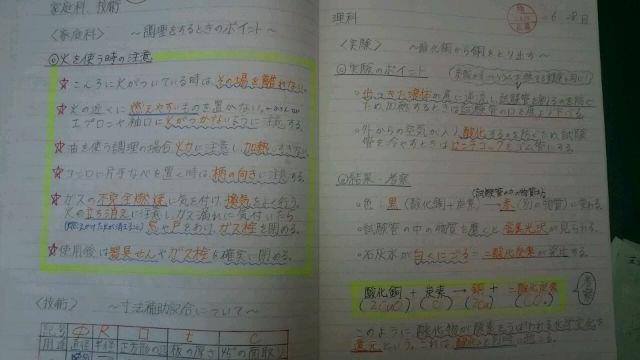 家庭科、技術
<家庭科> ～調理をするときのポイント～
◎火を使う時の注意
☆こんろに火がついている時は、その場を離れない。
☆火の近くに燃えやすいものを置かない。
エプロンや袖口に火がつかないように注意する。
☆油を使う調理の場合、火力に注意し、加熱しすぎない。
☆コンロに片手なべを置く時は、柄の向きに注意する。
☆ガスの不完全燃焼に気を付け、換気をよく行う。
火の立ち消えに注意し、ガス漏れに気付いたら
窓や戸をあけ、ガス栓を閉める。
☆使用後は器具せんやガス栓を確実に閉める。
<技術> ～寸法補助記合について～
記号 Φ R □ t C
用途 直径 半径 正方形の辺 板の厚さ 45°の面取り
理科
6
<実験> ～酸化銅から銅をとり出す～
◎実験のポイント
ため、加熱するときは試験管の口を底より下げる。
・外からの空気が入り、酸化するのを防ぐため、試験
管を冷やすときはピンチコックをゴム管にする。
◎結果・考察
(試験管の中の物質が)
・色：黒(酸化銅+炭素)→赤(別の物質)に変わる。
・試験管の中の物質を磨くと金属光沢が見られる。
・石灰水が白くにごる=二酸化炭素が発生する。
酸化銅 + 炭素 → 銅 + 二酸化炭素
(2CuO) (C) (2Cu) (CO₂)
このように酸化物が酸素をうばわれる化学変化を
還元という。これは酸化と同時に起こる。